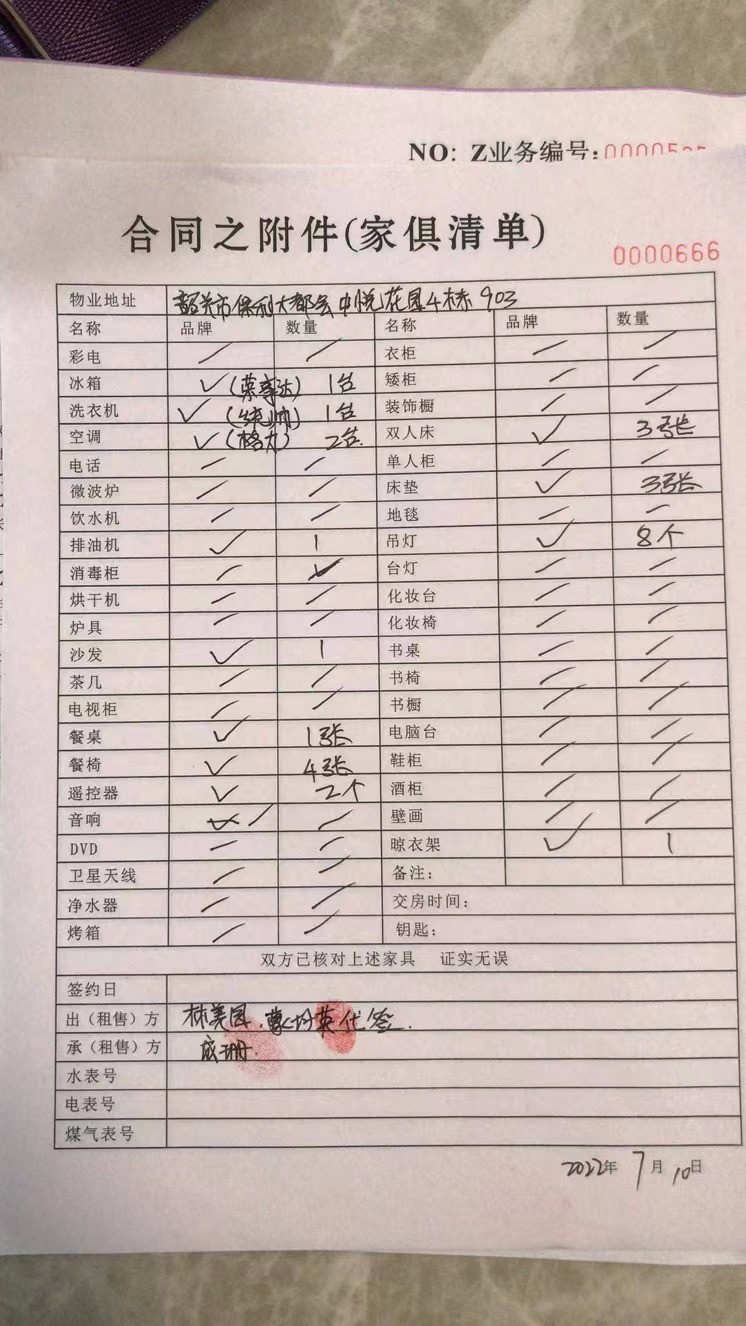 NO: Z业务编号:
合同之附件(家俱清单)
0000666
物业地址 韶关市保利大都会中悦花园4栋903
名称 品牌 数量 名称 品牌 数量
彩电 / / 衣柜 / /
冰箱 ✓(荣事达) 1台 矮柜 / /
洗衣机 ✓(统帅) 1台 装饰橱 / /
空调 ✓(格力) 2台. 双人床 ✓ 3张
电话 / / 单人柜 / /
微波炉 / / 床垫 ✓ 3张
饮水机 / / 地毯 / /
排油机 ✓ 1 吊灯 ✓ 8个
消毒柜 / ✓ 台灯 / /
烘干机 / / 化妆台 / /
炉具 / / 化妆椅 / /
沙发 ✓ 1 书桌 / /
茶几 / / 书椅 / /
电视柜 / / 书橱 / /
餐桌 ✓ 1张 电脑台 / /
餐椅 ✓ 4张 鞋柜 / /
遥控器 ✓ 2个 酒柜 / /
音响 / / 壁画 / /
DVD / / 晾衣架 ✓ 1
卫星天线 / / 备注:
净水器 / / 交房时间:
烤箱 / / 钥匙:
双方已核对上述家具 证实无误
签约日
出(租售)方 林美园. 英代签.
承(租售)方 成珊.
水表号
电表号
煤气表号
2022年7月10日